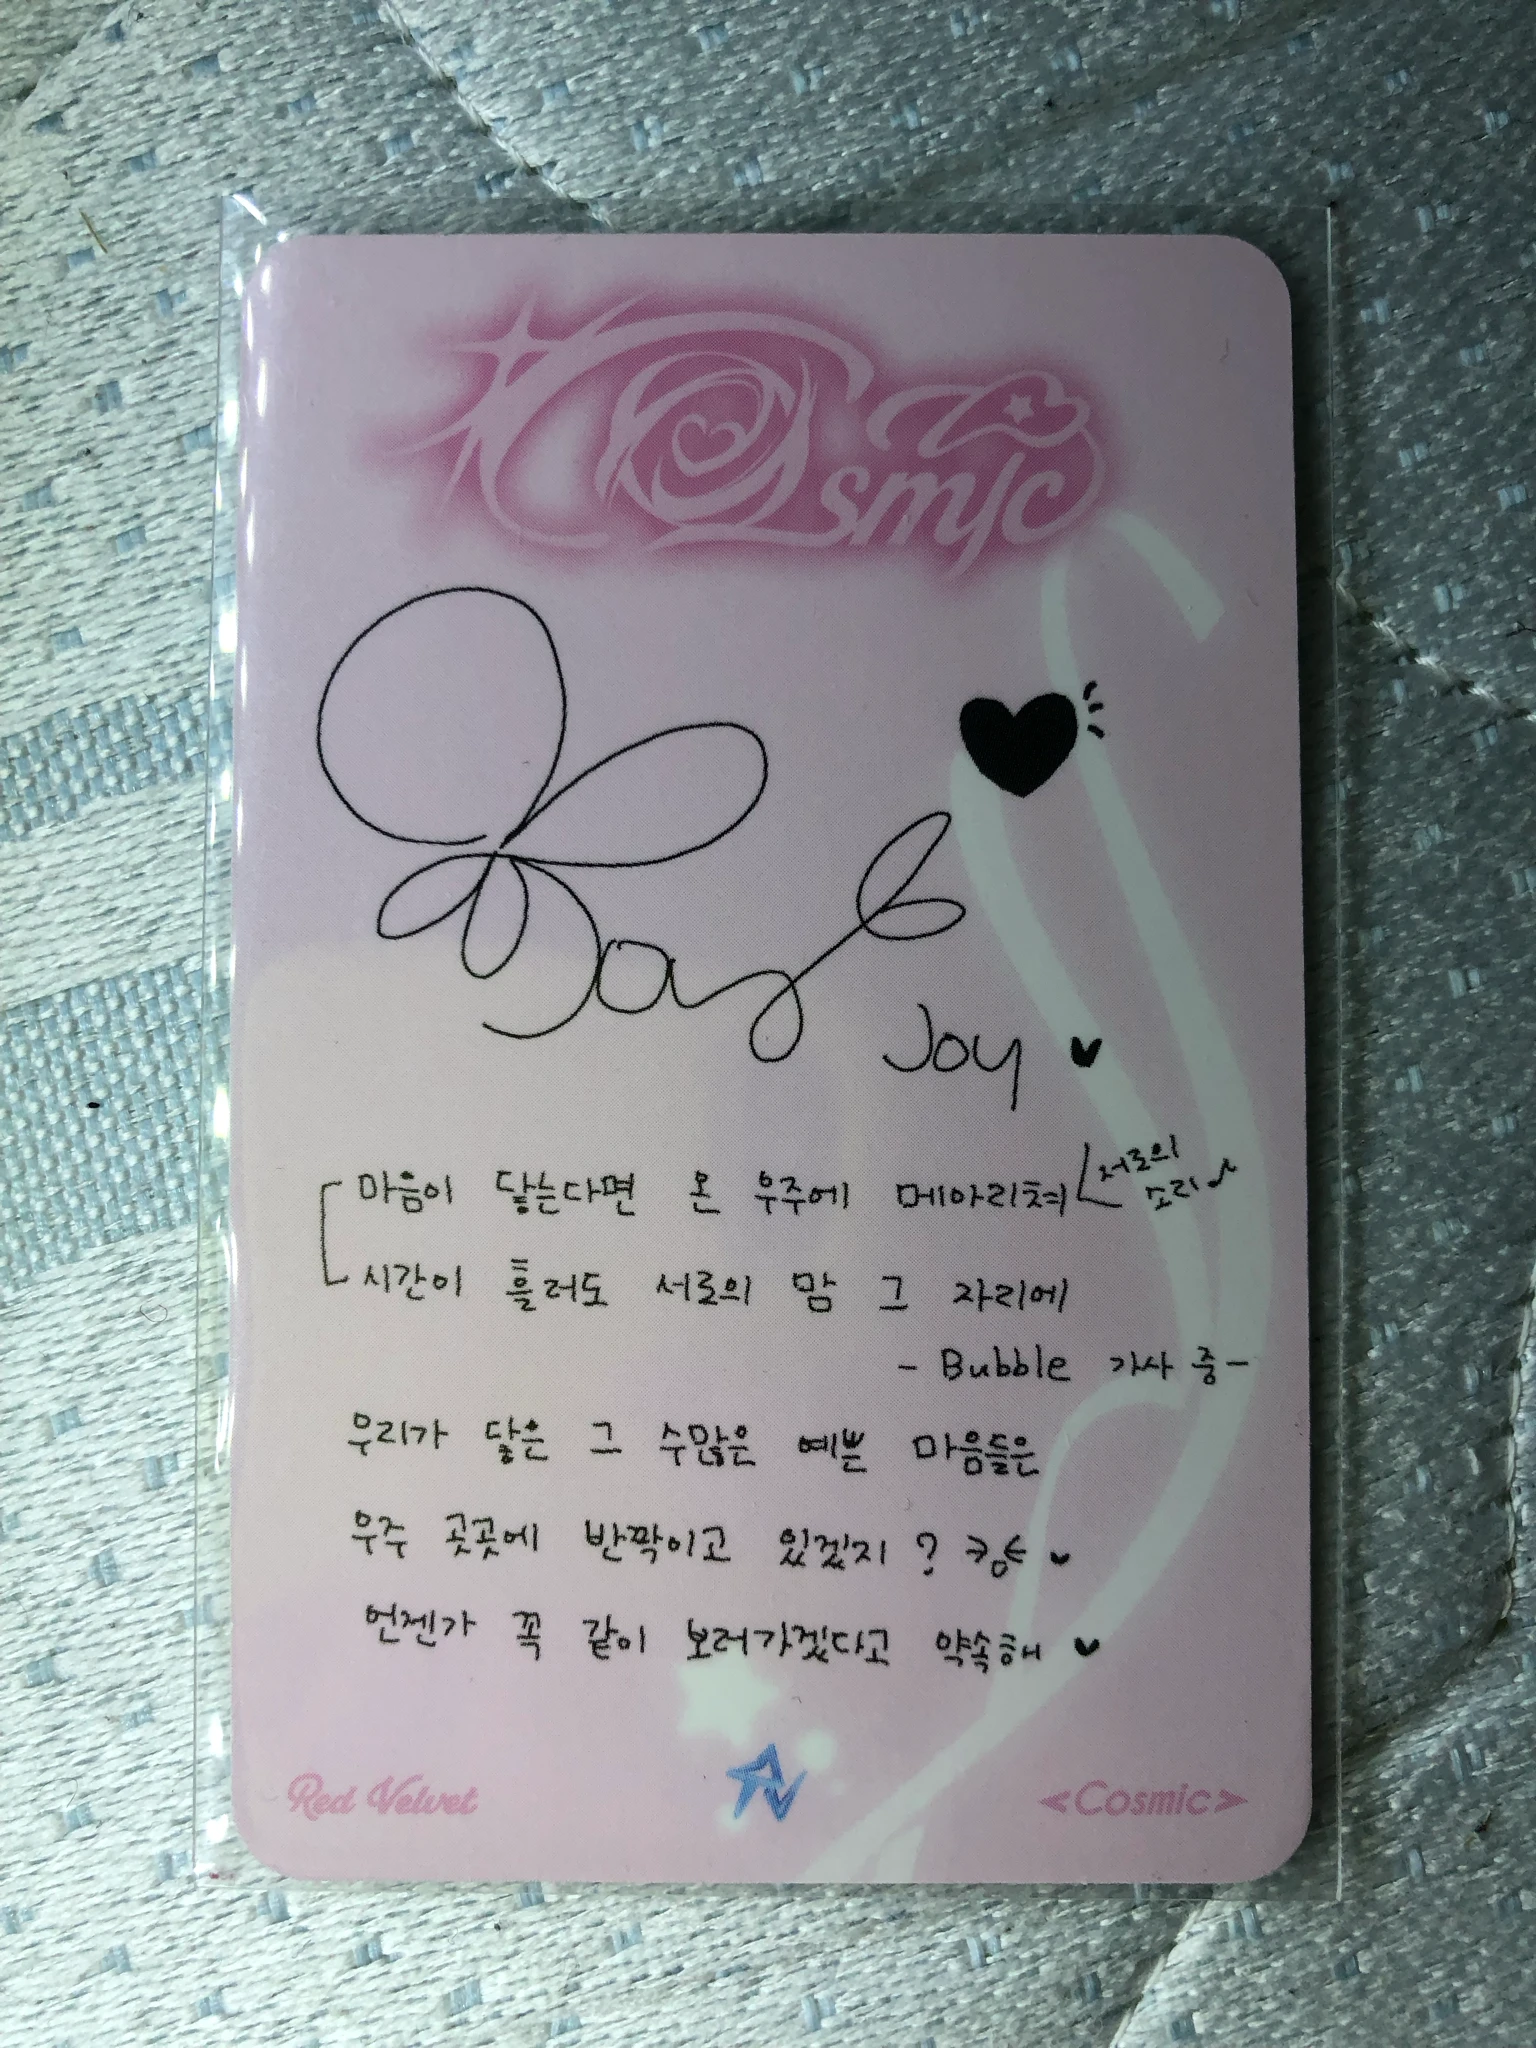 Cosmic
Joy
마음이 닿는다면 온 우주에 메아리쳐 서로의
소리♪
시간이 흘러도 서로의 맘 그 자리에
- Bubble 가사 중 -
우리가 닿은 그 수많은 예쁜 마음들은
우주 곳곳에 반짝이고 있겠지?
언젠가 꼭 같이 보러가겠다고 약속해 ♥
Red Velvet
RV
<Cosmic>